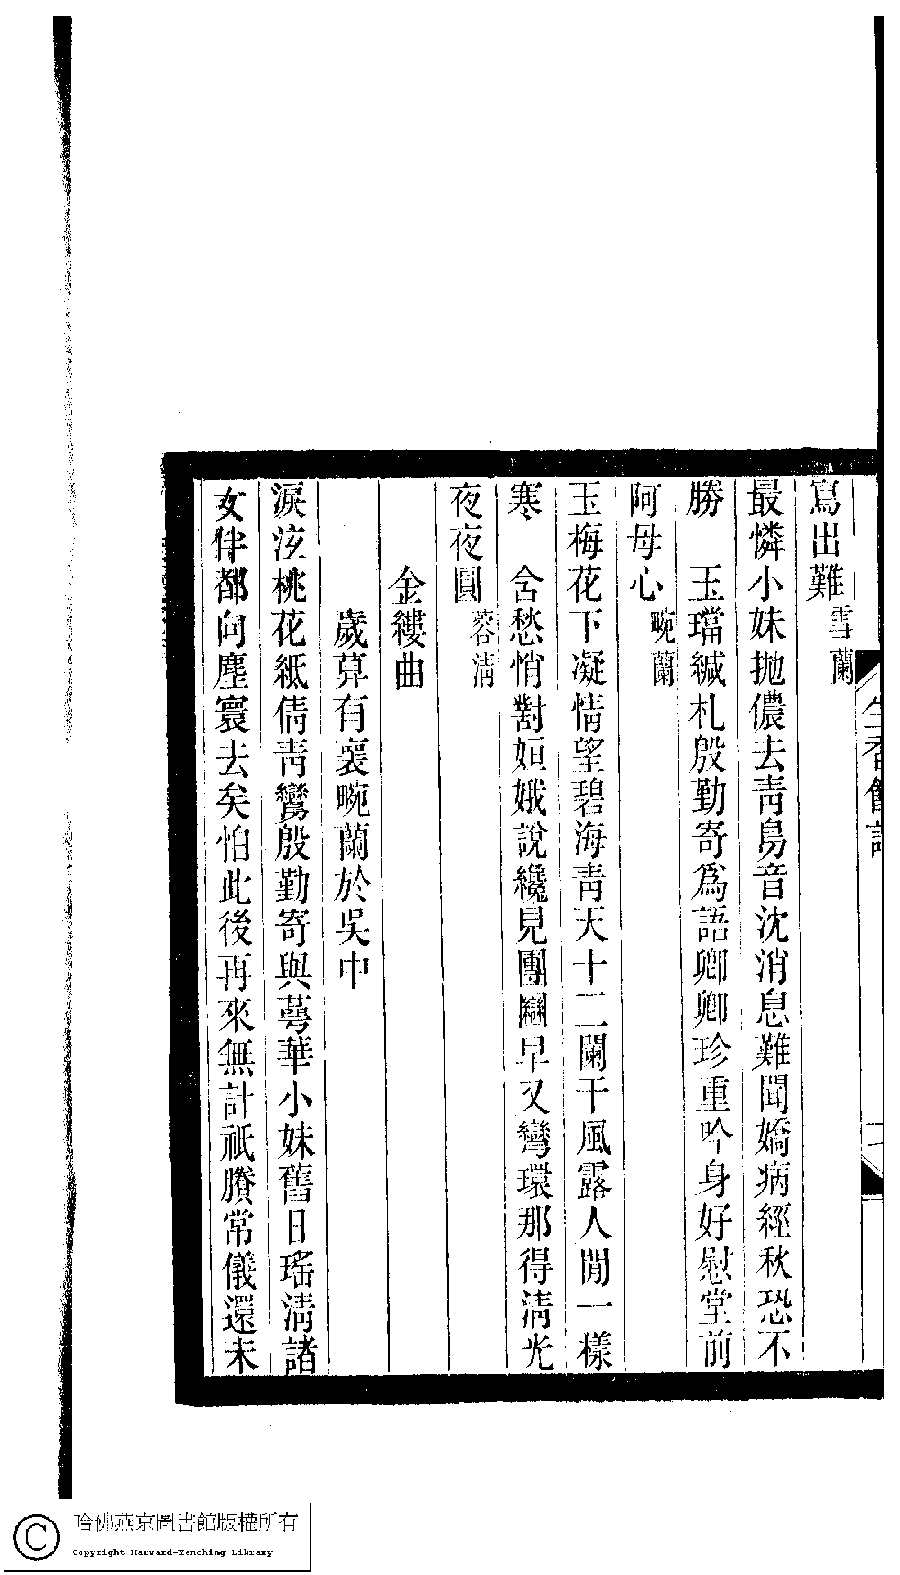 寫出難 雪蘭
最憐小妹拋儂去青鳥音沈消息難聞嬌病經秋恐不
勝　玉璫緘札殷勤寄爲語卿卿珍重吟身好慰堂前
阿母心 畹蘭
玉梅花下凝情望碧海青天十二闌干風露人閒一樣
寒　含愁悄對姮娥說纔見團圞早又彎環那得淸光
夜夜圓 蓉淸
金縷曲
歲莫有褱畹蘭於吳中
淚泫桃花紙倩靑鸞殷勤寄與萼華小妹舊日瑤淸諸
女伴都向塵寰去矣怕此後再來無計祇賸常儀還未
生香館詞
哈佛燕京圖書館版權所有
Copyright Harvard-Yenching Library